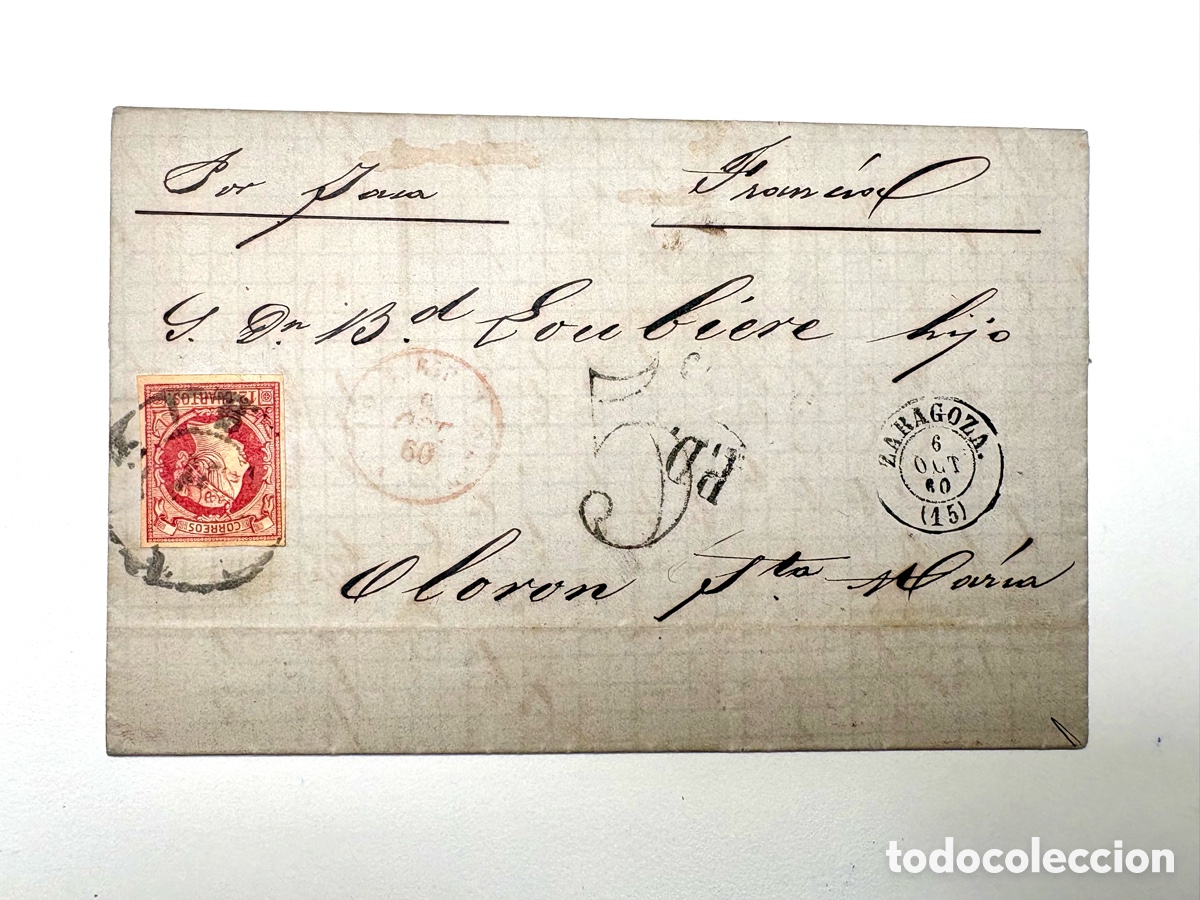 Por Jaca
Francia
S. Dn. Bd Loubiere hijo
12 CUARTOS
CORREOS
OCT
60
P.D.
ZARAGOZA.
6
OCT
60
(15)
Oloron Sta María
todocoleccion